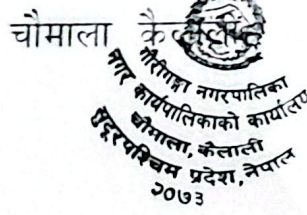 चौमाला कैलाली
गौरीगङ्गा नगरपालिका
नगर कार्यपालिकाको कार्यालय
चौमाला, कैलाली
सुदूरपश्चिम प्रदेश, नेपाल
२०७३